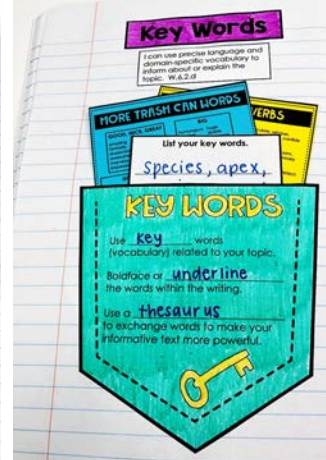 Key Words
I can use precise language and
domain-specific vocabulary to
inform about or explain the
topic. W.6.2.d
MORE TRASH CAN WORDS
VERBS
GOOD, NICE, GREAT
BIG
List your key words.
species, apex,
KEY WORDS
Use key words
(vocabulary) related to your topic.
Boldface or underline
the words within the writing.
Use a thesaurus
to exchange words to make your
informative text more powerful.